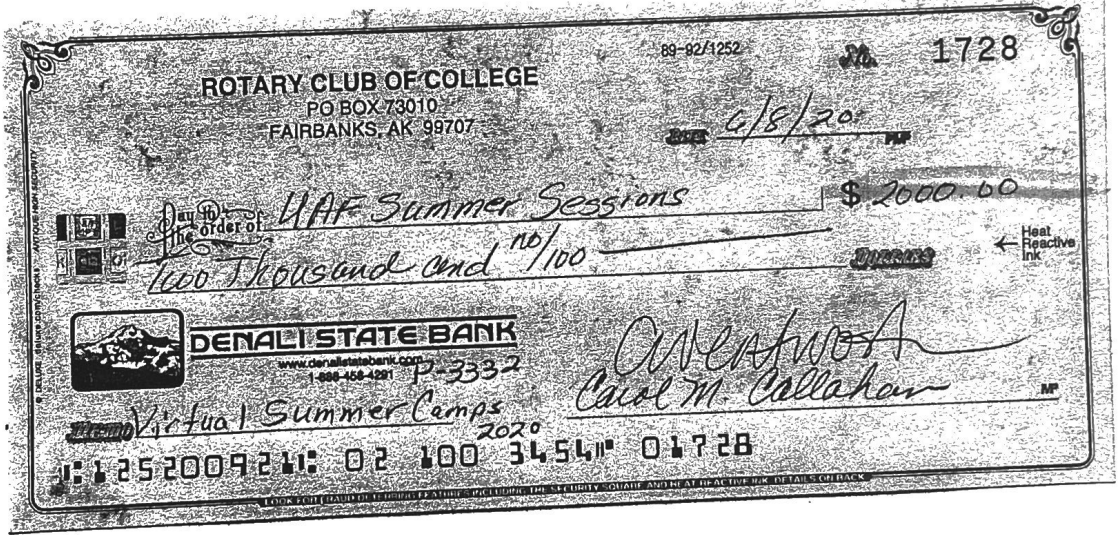 89-92/1252
No. 1728
ROTARY CLUB OF COLLEGE
PO BOX 73010
FAIRBANKS, AK 99707
Date 6/8/20
Pay to the order of UAF Summer Sessions $ 2000.00
Two Thousand and no/100 Dollars
Heat Reactive Ink
DENALI STATE BANK
www.denalistatebank.com
1-888-458-4291 P-3332
Carol M. Callahan MP
Memo Virtual Summer Camps 2020
⑆125200921⑆ 02 100 3454⑈ 01728
LOOK FOR FRAUD DETERRING FEATURES INCLUDING THE SECURITY SQUARE AND HEAT REACTIVE INK. DETAILS ON BACK